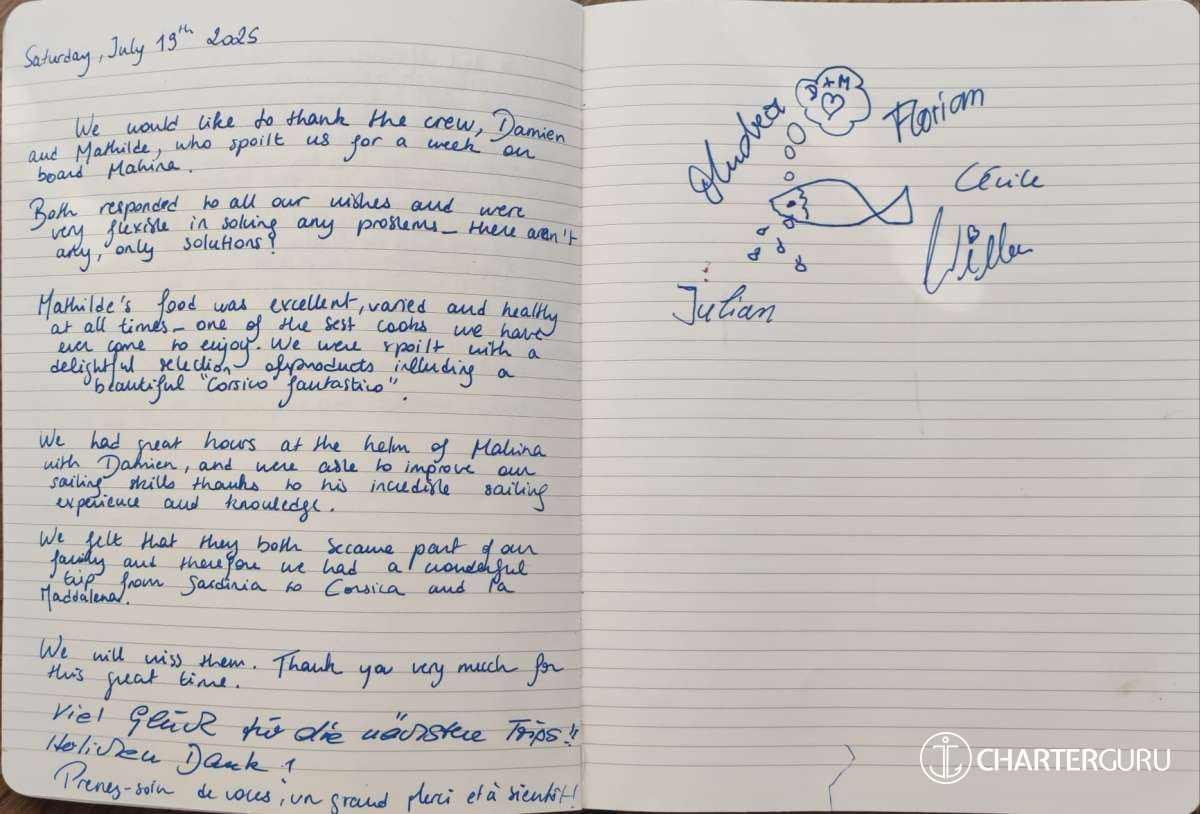 Saturday, July 19th 2025
We would like to thank the crew, Damien
and Mathilde, who spoilt us for a week on
board Mahina.
Both responded to all our wishes and were
very flexible in solving any problems – there aren't
any, only solutions!
Mathilde's food was excellent, varied and healthy
at all times – one of the best cooks we have
ever come to enjoy. We were spoilt with a
delightful selection of products including a
beautiful "Corsico fantastico".
We had great hours at the helm of Mahina
with Damien, and were able to improve our
sailing skills thanks to his incredible sailing
experience and knowledge.
We felt that they both became part of our
family and therefore we had a wonderful
trip from Sardinia to Corsica and la
Maddalena.
We will miss them. Thank you very much for
this great time.
Viel Glück für die nächsten Trips!!
Herlichen Dank!
Prenez-soin de vous, un grand merci et à bientôt!
D + M
Florian
Cécile
Julian
CHARTERGURU